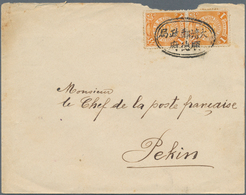 大清郵政局
Monsieur
Le Chef de la poste française
Pekin